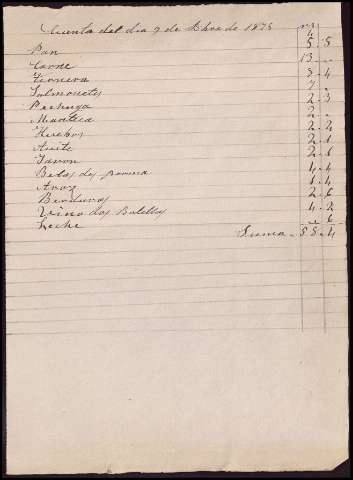 Cuenta del dia 9 de Abre de 1875 rs
Pan 5 . 5
Carne 13 . „
Ternera 5 . 4
Salmonetes 7 .
Pechuga 2 . 3
Manteca 2 .
Huebos 2 . 2
Aceite 2 . 1
Javon 2 . 6
Belas de 4 . 4
Aroz 1 . 4
Berduras 2 . 6
Vino dos Botellas 4 . 2
Leche „ 6
Suma - 55 . 4